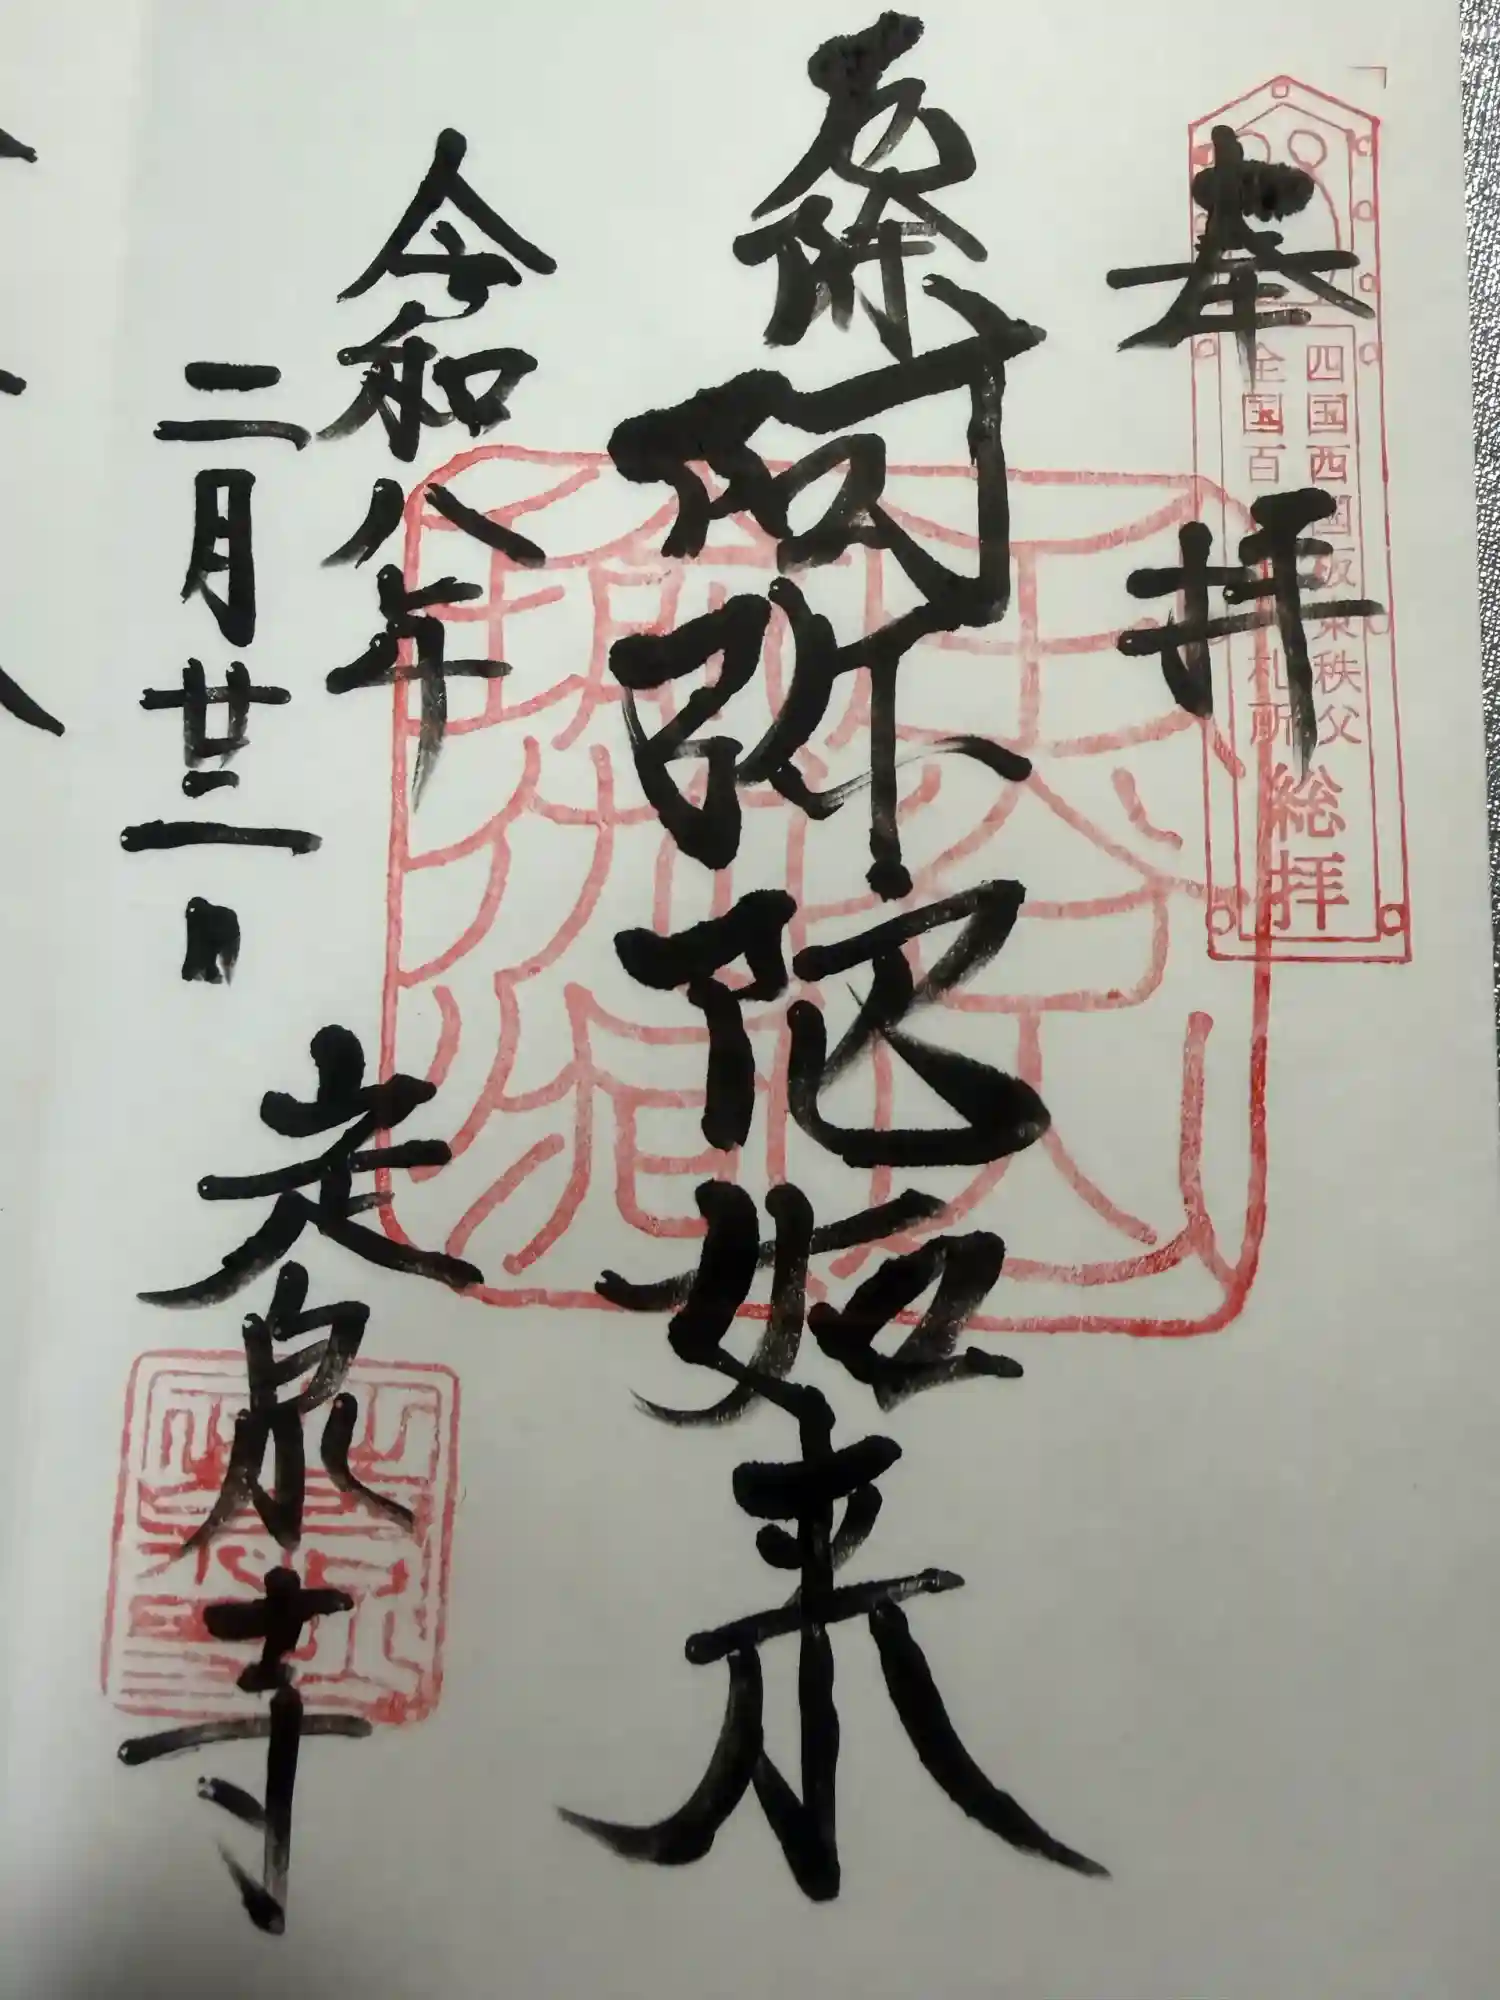 奉拝
四国西国坂東秩父
全国百
札所
総拝
厄除
阿弥陀如来
令和八年
二月廿二日
泉寺